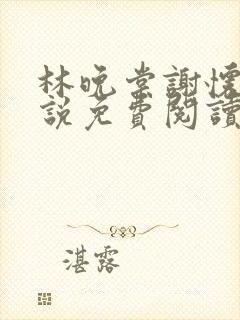 林晚棠謝懷
說免費閱讀
湛露